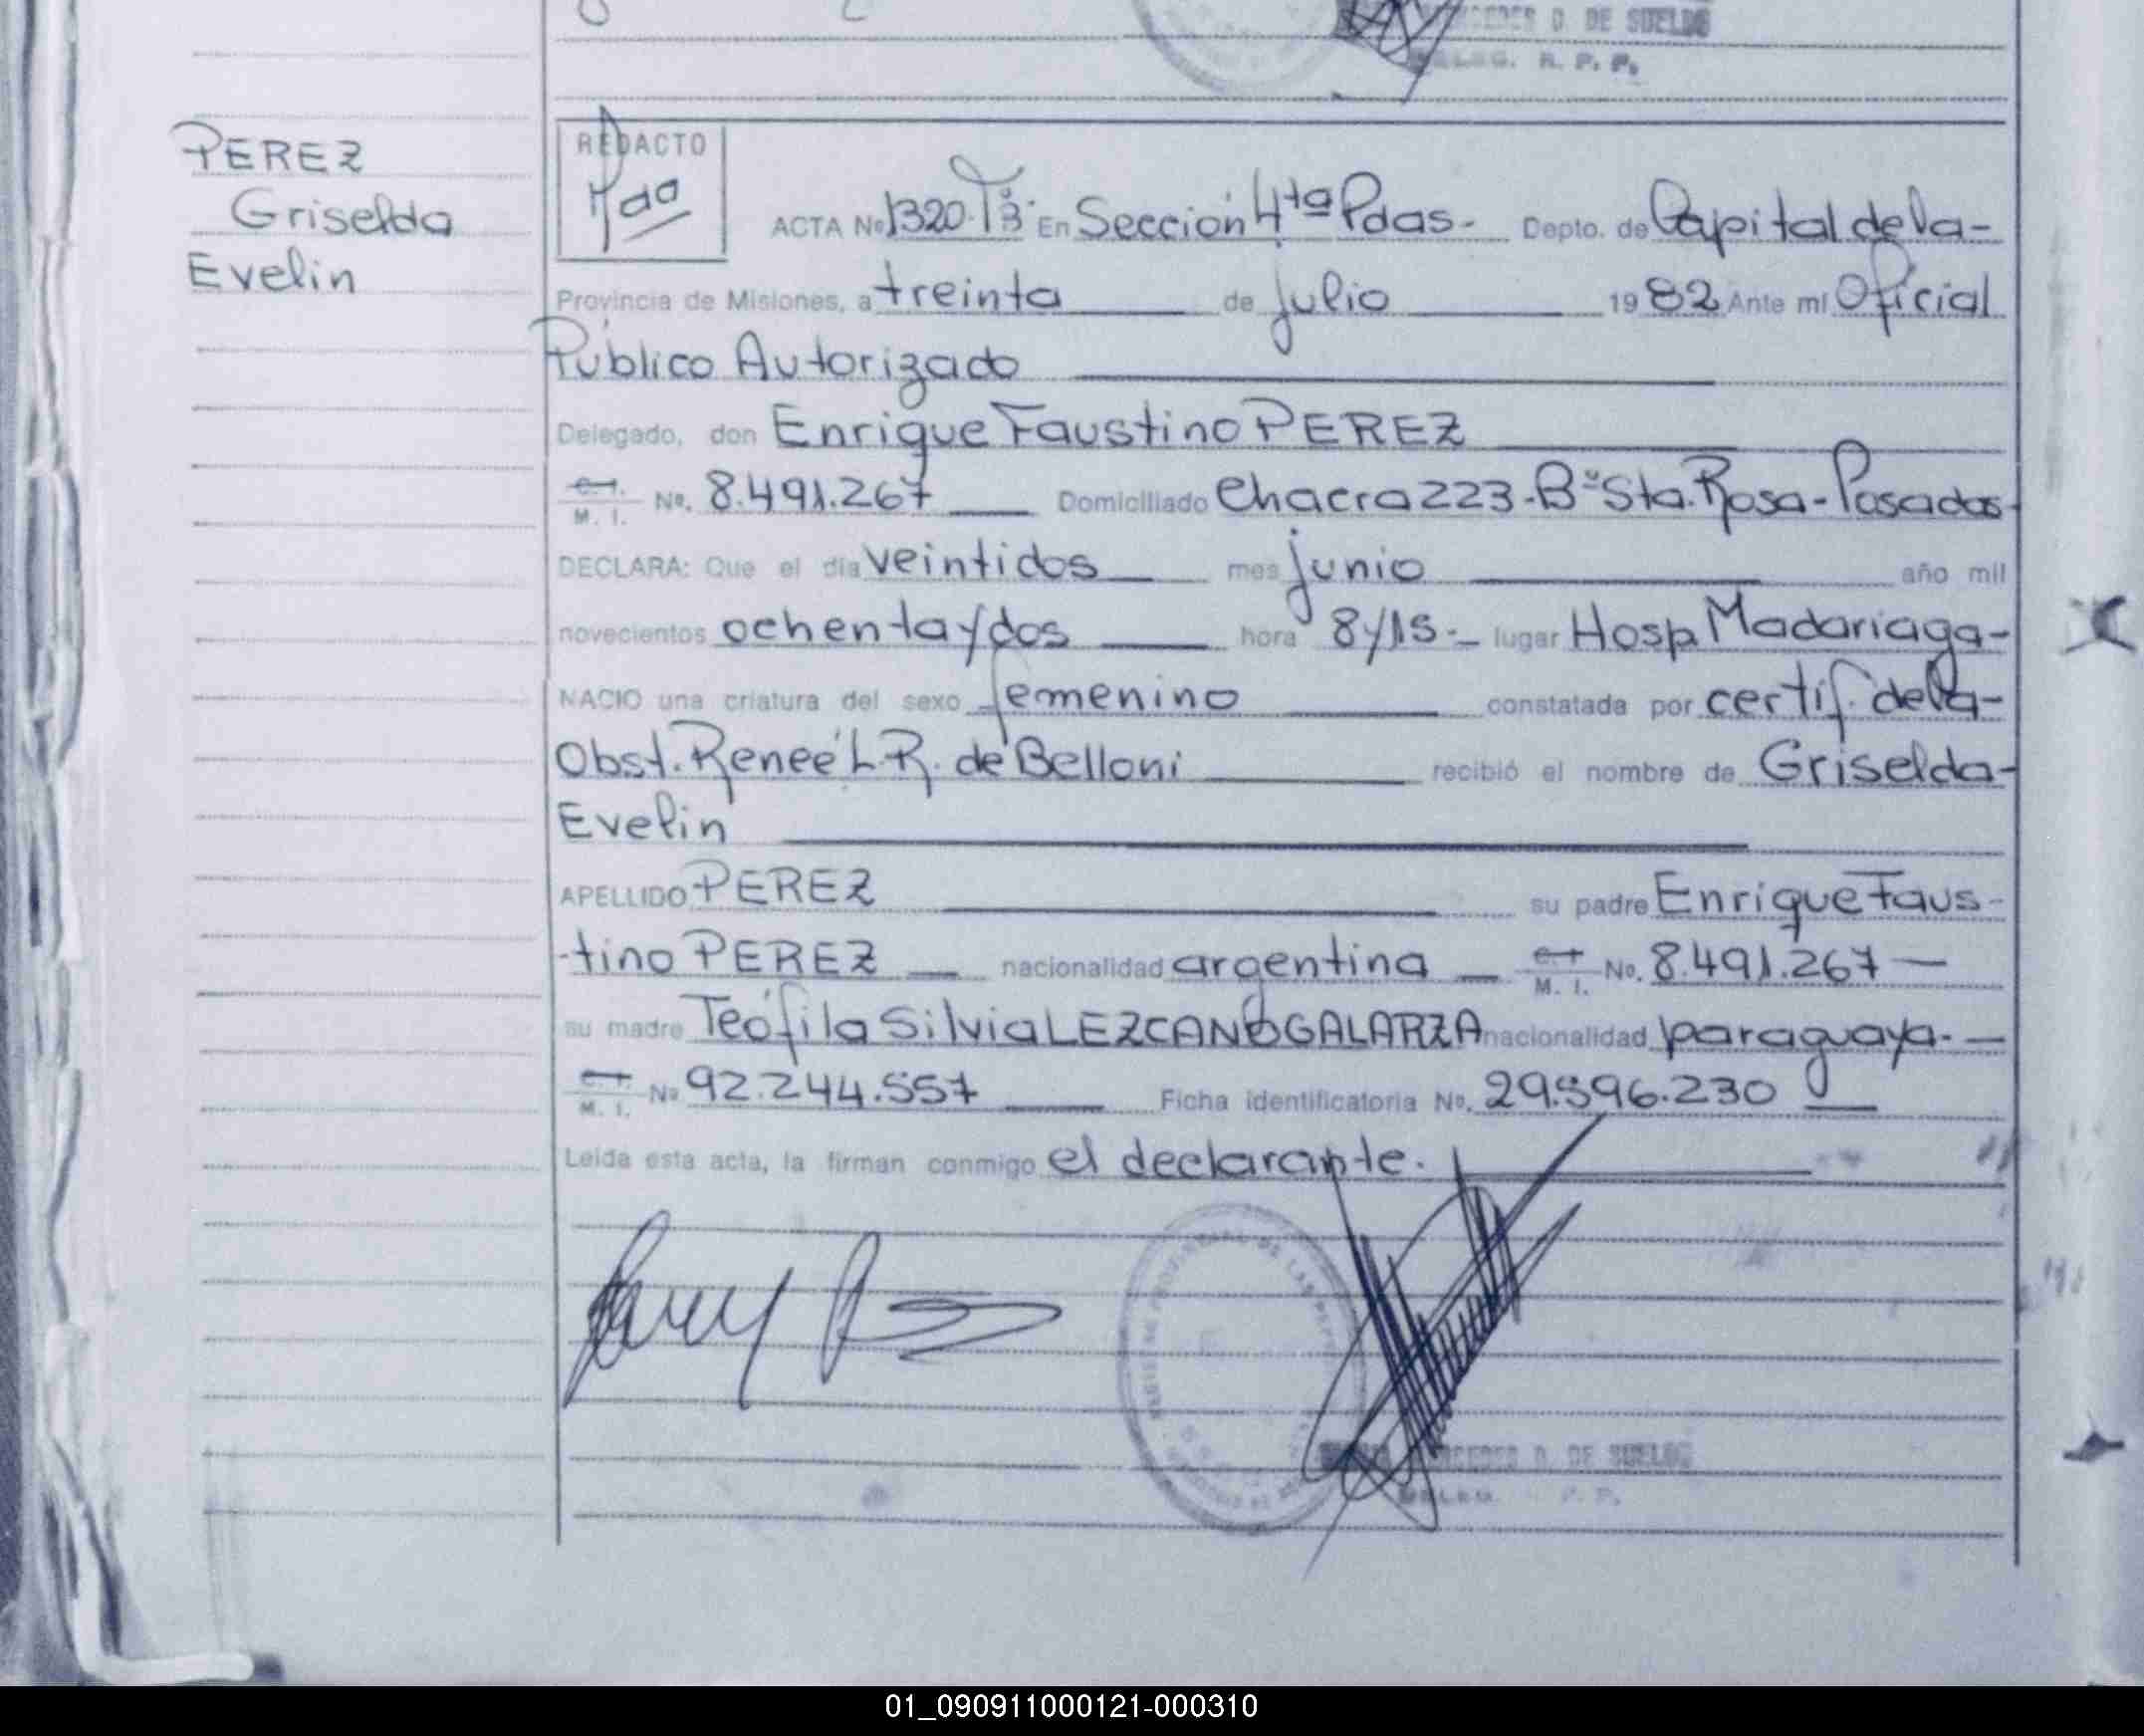 MERCEDES D. DE SUELDO
DELEG. R. P. P.
PEREZ
Griselda
Evelin
REDACTO
ACTA Nº 1320 Tº3· En Sección 4ta Pdas- Depto. de Capital de la-
Provincia de Misiones, a treinta de julio 1982 Ante mí Oficial
Público Autorizado
Delegado, don Enrique Faustino PEREZ
C. I. M. I. No. 8.491.267 Domiciliado Chacra 223-Bº Sta. Rosa-Posadas
DECLARA: Que el día veintidos mes junio año mil
novecientos ochenta y dos hora 8y15- lugar Hosp Madariaga-
NACIO una criatura del sexo femenino constatada por certif. de la-
Obst. Reneé L. R. de Belloni recibió el nombre de Griselda-
Evelin
APELLIDO PEREZ su padre Enrique Faus-
-tino PEREZ nacionalidad argentina C. I. M. I. No. 8.491.267
su madre Teófila Silvia LEZCANO GALARZA nacionalidad paraguaya.
C. I. M. I. No 92.244.557 Ficha identificatoria No. 29.596.230
Leída esta acta, la firman conmigo el declarante.
REGISTRO PROVINCIAL DE LAS PERSONAS
MERCEDES D. DE SUELDO
DELEG. P. P.
01_090911000121-000310